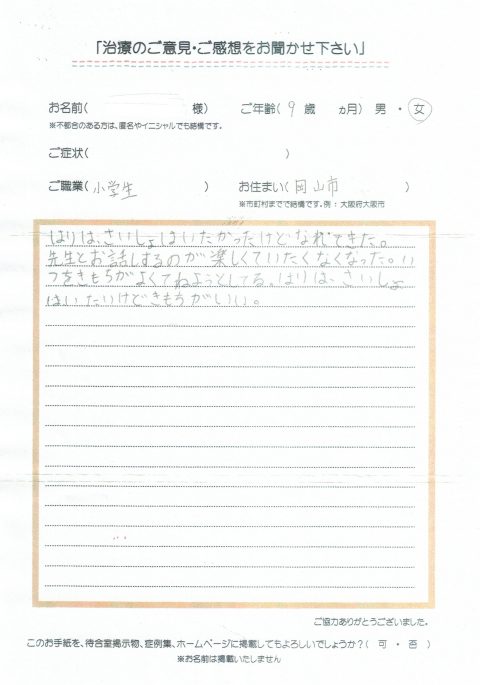 「治療のご意見・ご感想をお聞かせ下さい」
お名前( 様) ご年齢( 9 歳 カ月) 男 ・ 女
※不都合のある方は、匿名やイニシャルでも結構です。
ご症状( )
ご職業( 小学生 ) お住まい( 岡山市 )
※市町村までで結構です。例：大阪府大阪市
はりは、さいしょはいたかったけどなれてきた。
先生とお話しするのが楽しくていたくなくなった。い
つもきもちがよくてねようとしてる。はりは、さいしょ
はいたいけどきもちがいい。
ご協力ありがとうございました。
このお手紙を、待合室掲示物、症例集、ホームページに掲載してもよろしいでしょうか？( 可 ・ 否 )
※お名前は掲載いたしません